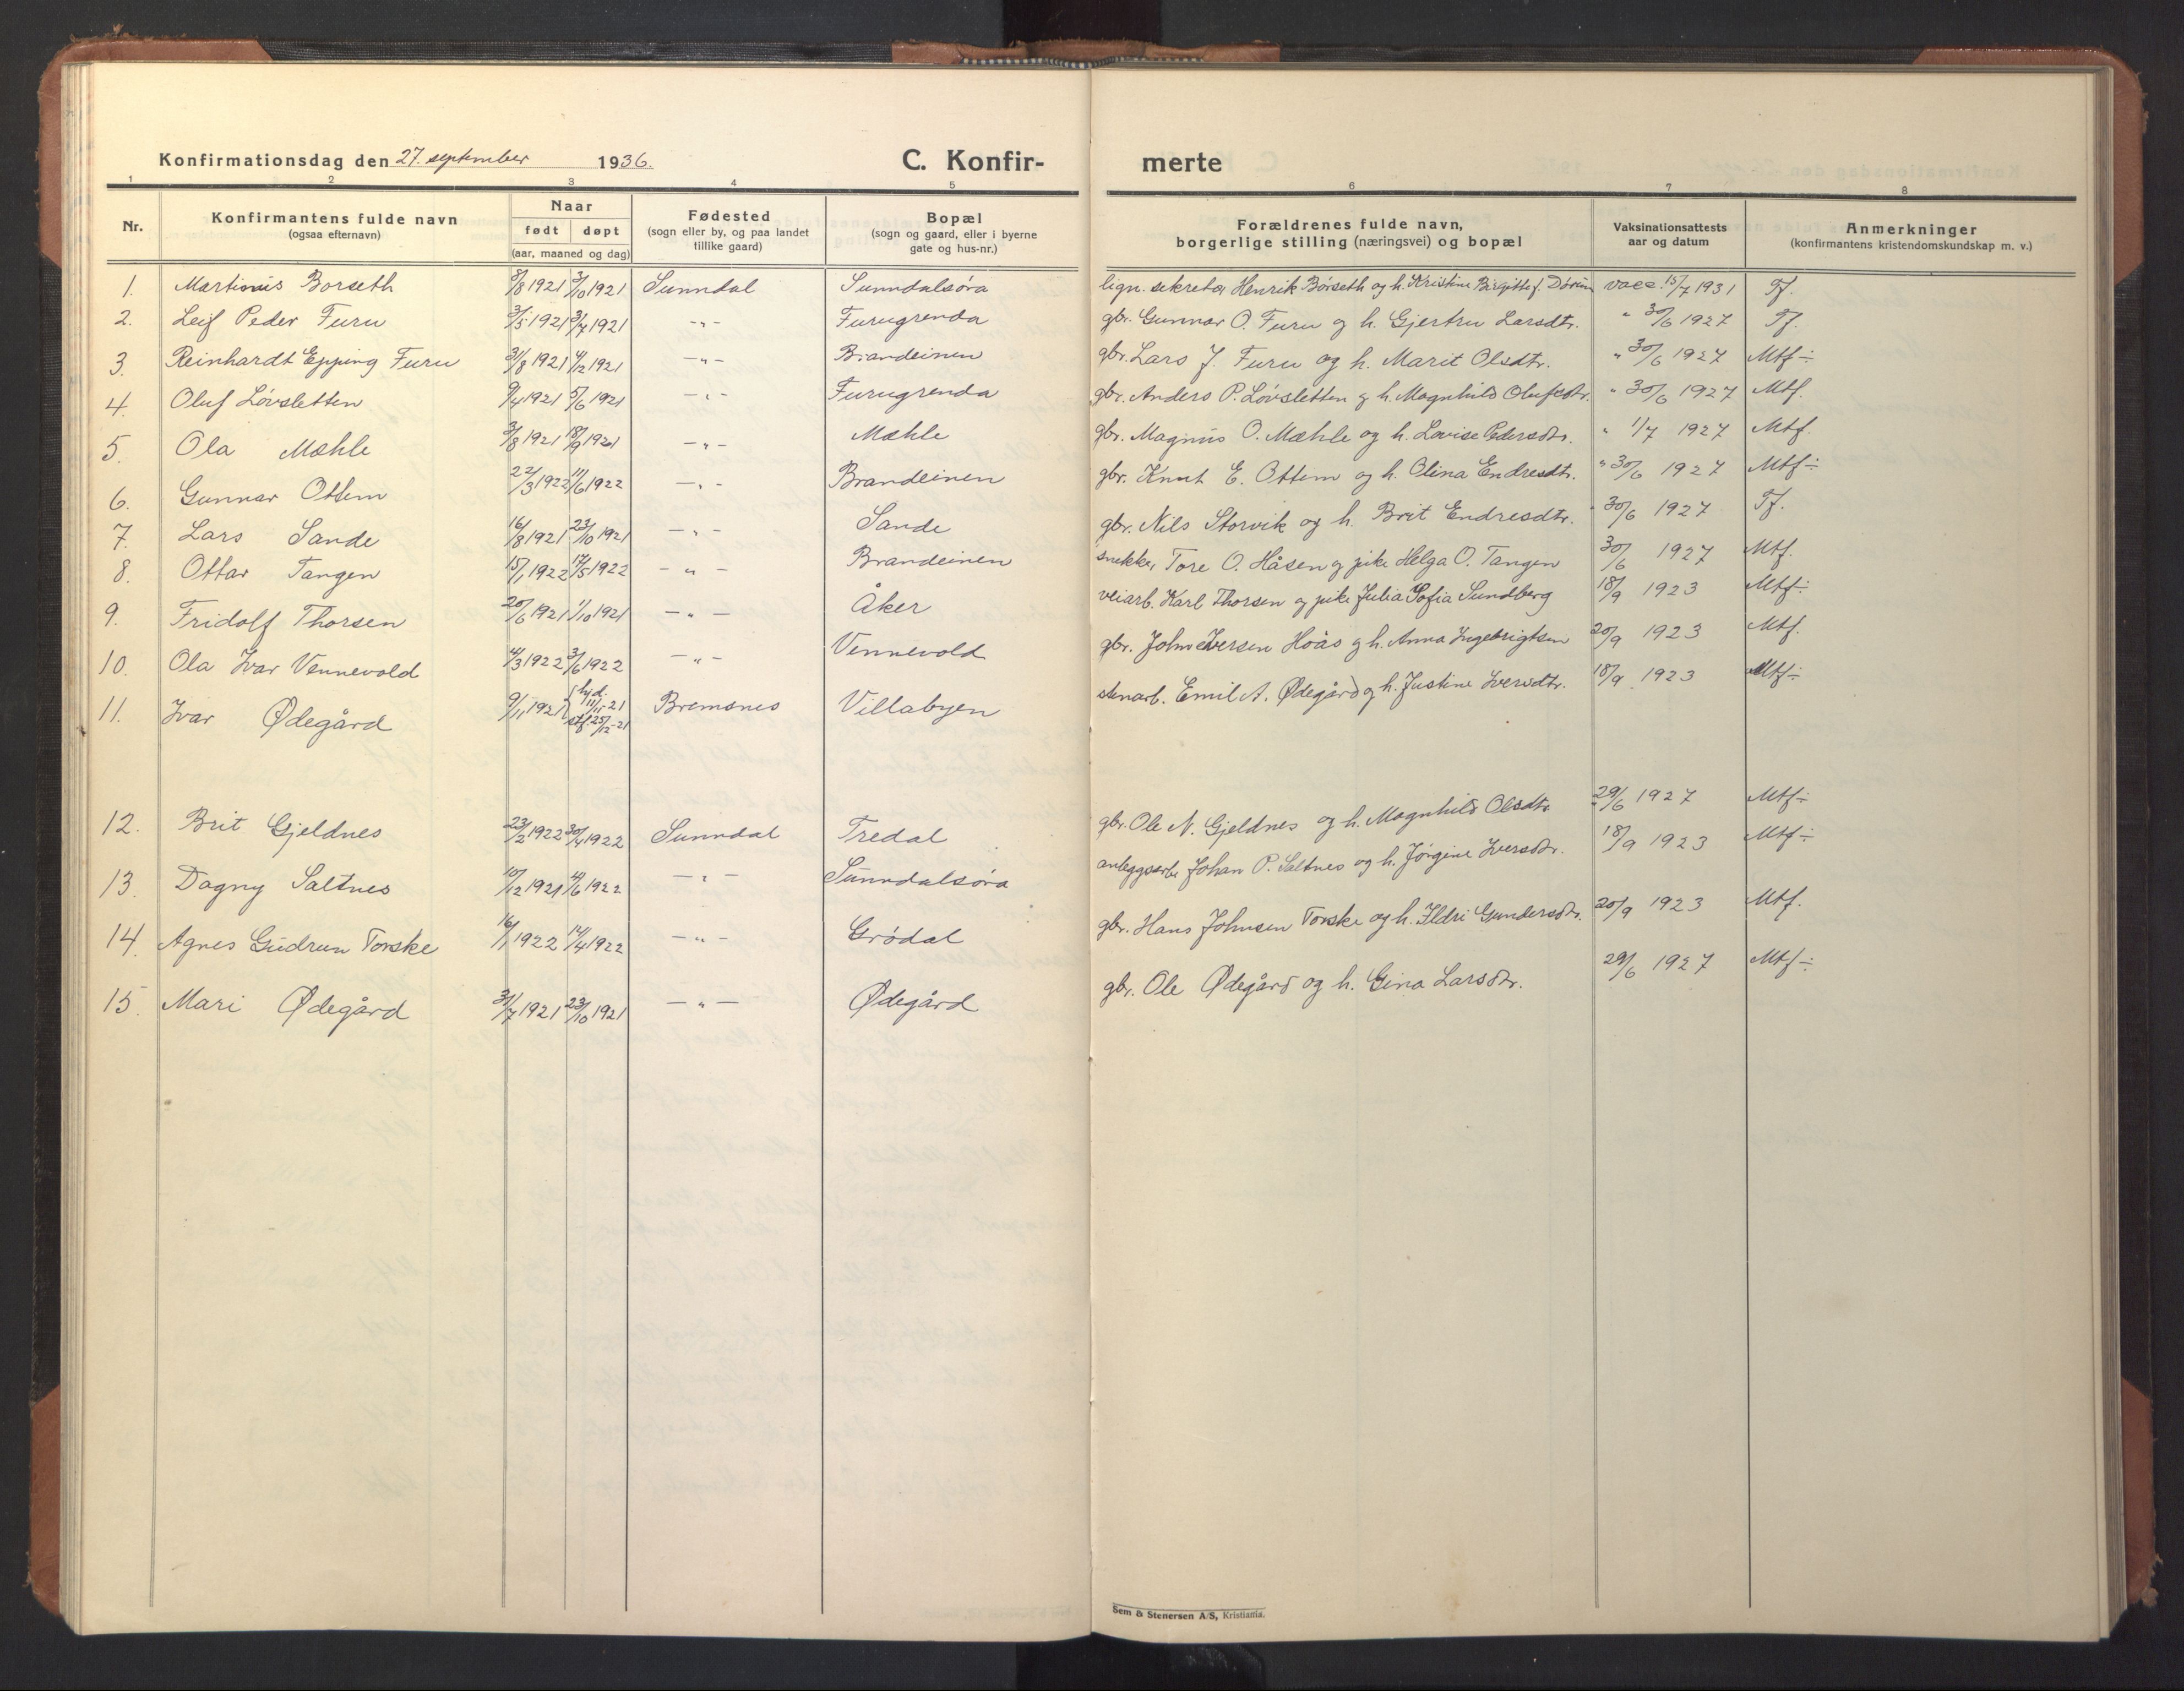 Konfirmationsdag den 27. september 1936.
C. Konfir- merte
1 2 3 4 5 6 7 8
Nr. | Konfirmantens fulde navn (ogsaa efternavn) | Naar født døpt (aar, maaned og dag) | Fødested (sogn eller by, og paa landet tillike gaard) | Bopæl (sogn og gaard, eller i byerne gate og hus-nr.) | Forældrenes fulde navn, borgerlige stilling (næringsvei) og bopæl | Vaksinationsattests aar og datum | Anmerkninger (konfirmantens kristendomskundskap m. v.)
1. Martinus Børseth 8/8 1921 3/10 1921 Sunndal Sunndalsøra lign. sekretær Henrik Børseth og h. Kristine Birgitte f. vacc. 15/7 1931 Tf.
2. Leif Peder Furu 3/5 1921 31/7 1921 -„- Furugrenda gbr. Gunnar O. Furu og h. Gjertru Larsdtr. „ 30/6 1927 Tf.
3. Reinhardt Epping Furu 31/8 1921 4/12 1921 -„- Brandeinen gbr. Lars J. Furu og h. Marit Olsdtr. „ 30/6 1927 Mtf÷
4. Oluf Løvsletten 9/4 1921 5/6 1921 -„- Furugrenda gbr. Anders P. Løvsletten og h. Magnhild Olufsdtr. „ 30/6 1927 Mtf.
5. Ola Mæhle 3/8 1921 18/9 1921 -„- Mæhle gbr. Magnus O. Mæhle og h. Lovise Pedersdtr. „ 1/7 1927 Mtf.
6. Gunnar Ottem 22/3 1922 11/6 1922 -„- Brandeinen gbr. Knut E. Ottem og h. Olina Endresdtr. „ 30/6 1927 Mtf÷
7. Lars Sande 16/8 1921 23/10 1921 -„- Sande gbr. Nils Storvik og h. Brit Endresdtr. „ 30/6 1927 Tf.
8. Ottar Tangen 15/1 1922 17/5 1922 -„- Brandeinen snekker Tore O. Håsen og pike Helga O. Tangen 30/6 1927 Mtf.
9. Fridolf Thorsen 20/6 1921 1/10 1921 -„- Åker veiarb. Karl Thorsen og pike Julia Sofia Sundberg 18/9 1923 Mtf÷
10. Ola Ivar Vennevold 4/3 1922 3/6 1922 -„- Vennevold gbr. John Iversen Hoås og h. Anna Ingebrigtsen 20/9 1923 Mtf.
11. Ivar Ødegård 9/11 1921 hjd. 11/11-21 stf. 25/12-21 Bremsnes Villabyen stenarb. Emil A. Ødegård og h. Justine Iversdtr. 18/9 1923 Mtf÷
12. Brit Gjeldnes 23/2 1922 30/4 1922 Sunndal Tredal gbr. Ole N. Gjeldnes og h. Magnhild Olsdtr. 29/6 1927 Mtf÷
13. Dagny Saltnes 10/12 1921 4/6 1922 -„- Sunndalsøra anleggsarb. Johan P. Saltnes og h. Jørgine Iversdtr. 18/9 1923 Mtf÷
14. Agnes Gudrun Torske 16/1 1922 17/4 1922 -„- Grødal gbr. Hans Johnsen Torske og h. Ildri Gundersdtr. 20/9 1923 Mtf.
15. Mari Ødegård 31/7 1921 23/10 1921 -„- Ødegård gbr. Ole Ødegård og h. Gina Larsdtr. 29/6 1927 Mtf÷
Sem & Stenersen A/S, Kristiania.